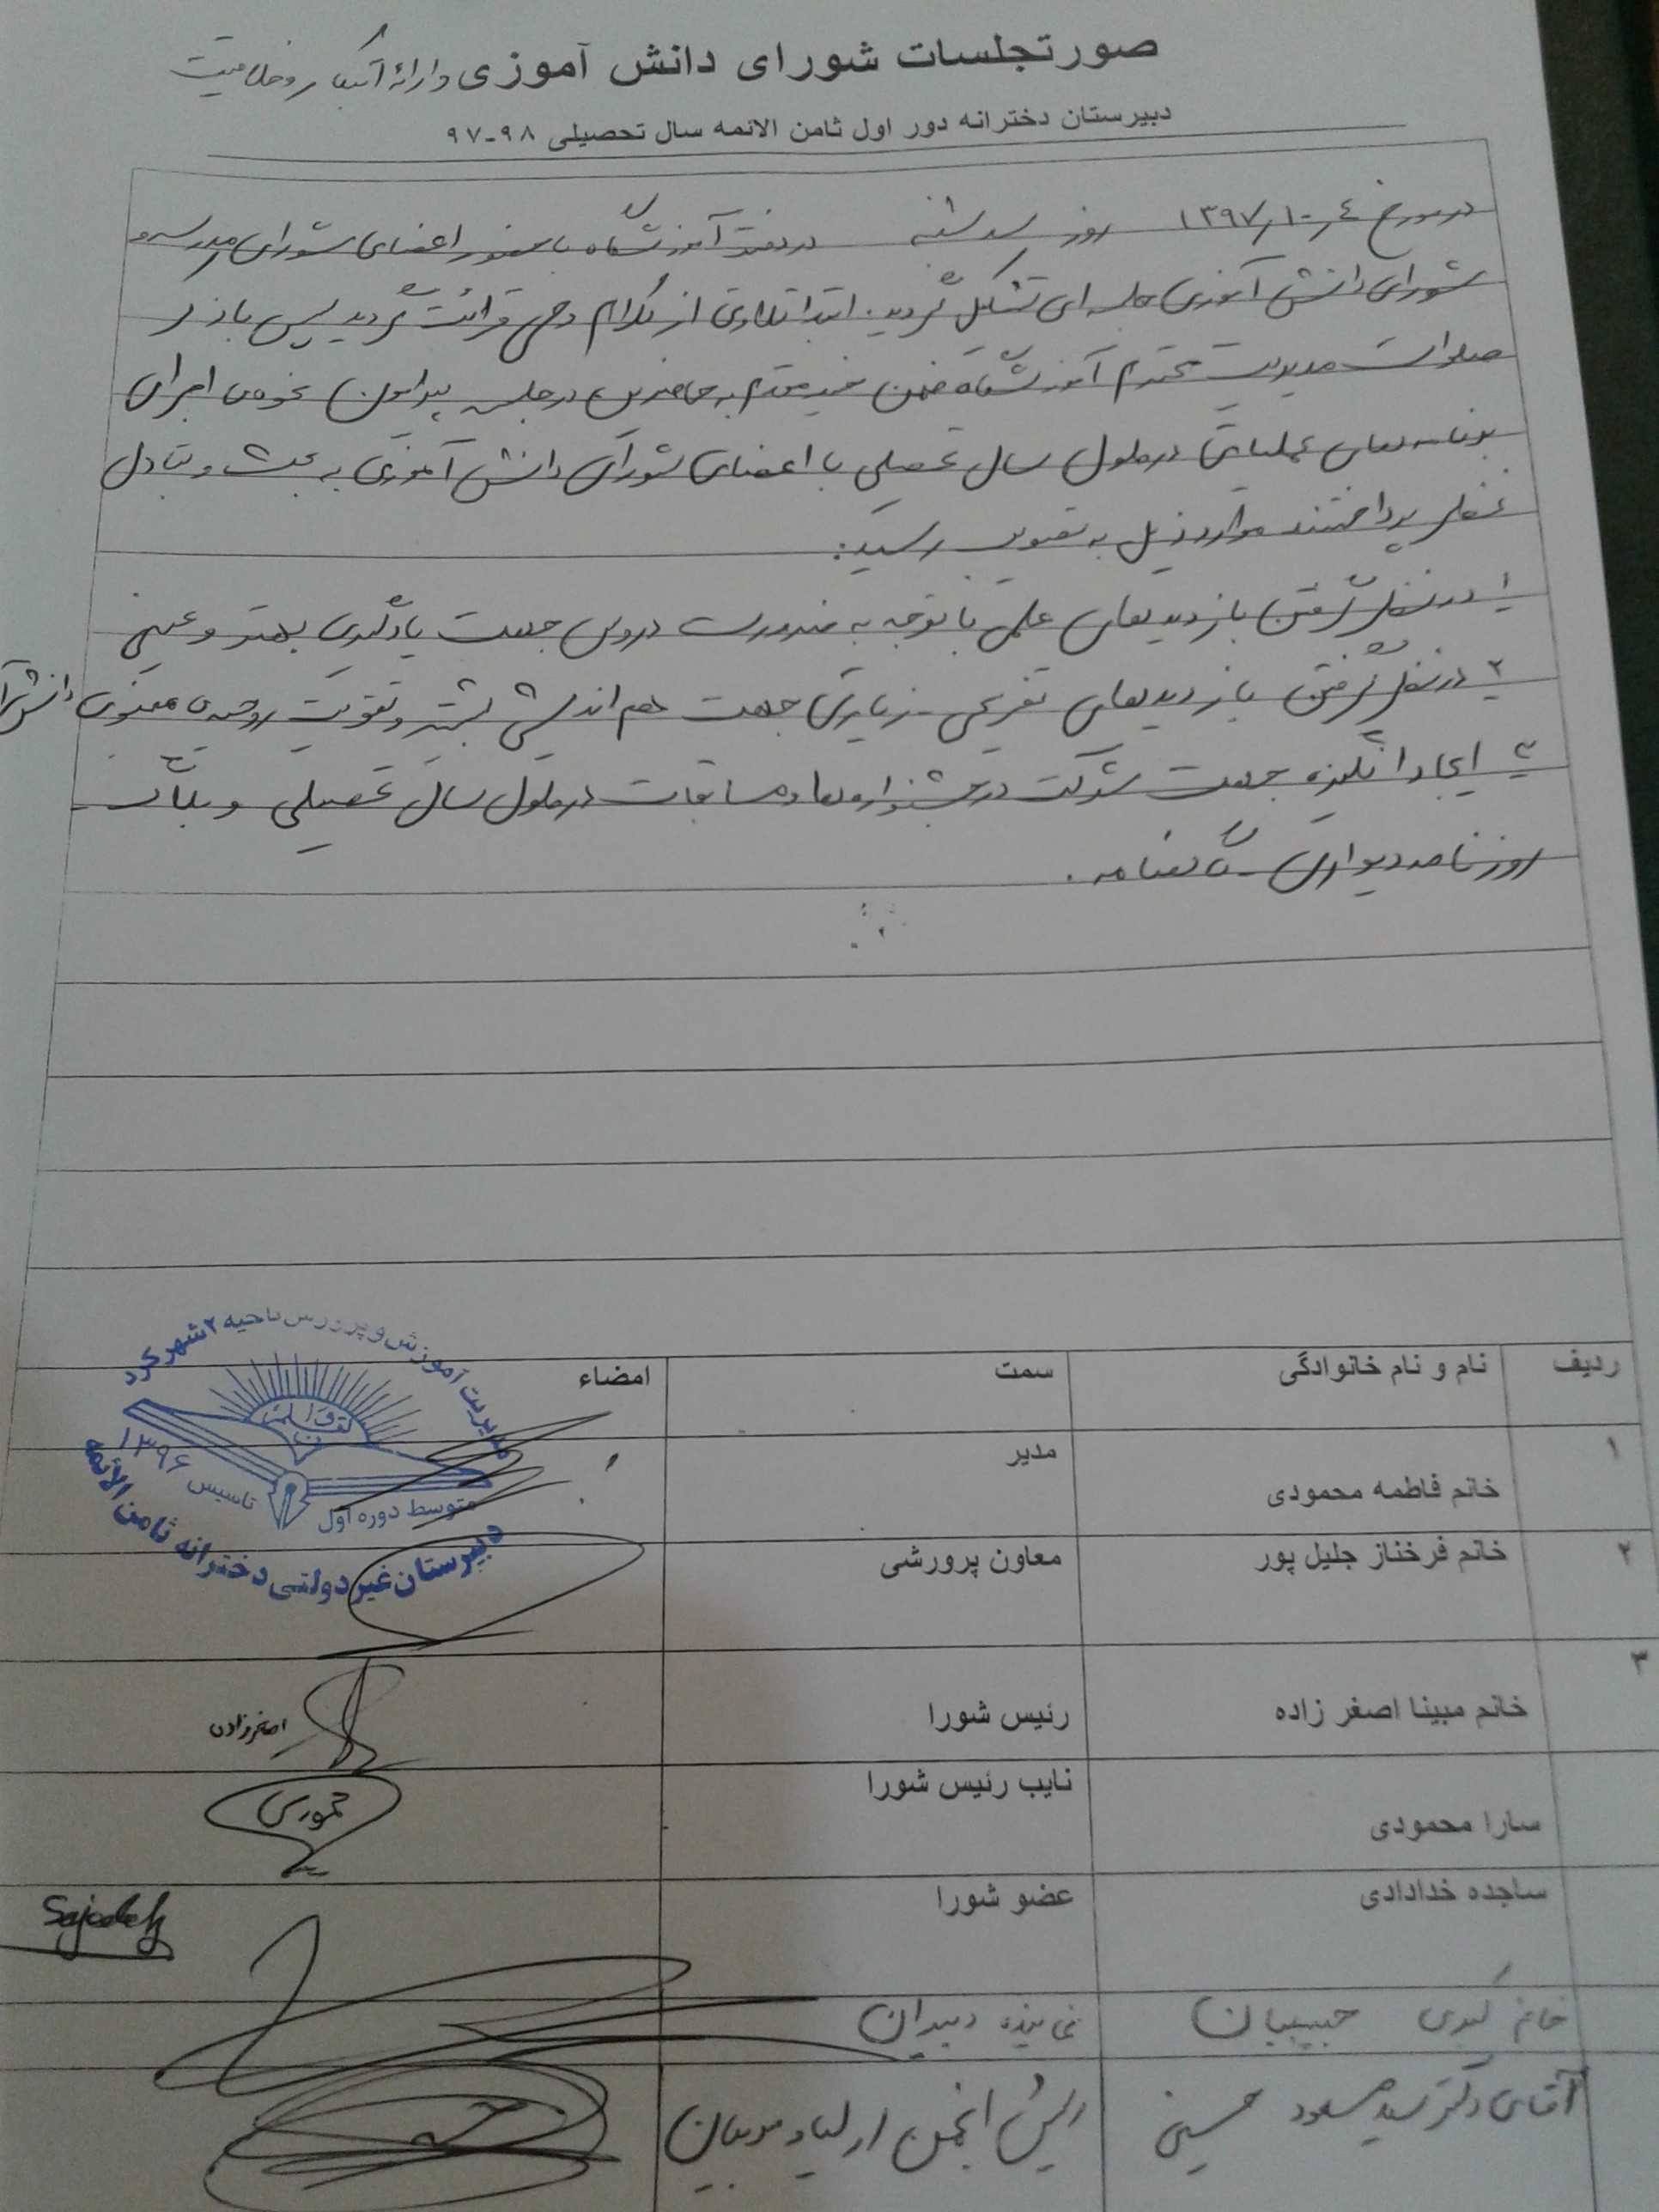 صورتجلسات شورای دانش آموزی و ارائه آن
دبیرستان دخترانه دور اول ثامن الائمه سال تحصیلی ۹۸-۹۷
در مورخ ۱۳۹۷/۱۰/۴ روز سه شنبه در دفتر آموزشگاه با حضور اعضای شورای مدرسه و
شورای دانش آموزی جلسه ای تشکیل گردید. ابتدا تلاوتی از کلام وحی قرائت گردید سپس با ذکر
صلوات مدیریت محترم آموزشگاه ضمن خیرمقدم به حاضرین در جلسه پیرامون نحوه ی اجرای
برنامه های عملیاتی در طول سال تحصیلی با اعضای شورای دانش آموزی به بحث و تبادل
نظر پرداختند موارد ذیل به تصویب رسید:
۱- در نظر گرفتن بازدیدهای علمی با توجه به ضرورت دروس جهت یادگیری بهتر و عینی
۲- در نظر گرفتن بازدیدهای تفریحی - زیارتی جهت هم اندیشی بیشتر و تقویت روحیه ی معنوی دانش آ
۳- ایجاد انگیزه جهت شرکت در جشنواره ها و مسابقات در طول سال تحصیلی
روزنامه دیواری - گاهنامه.
ردیف نام و نام خانوادگی سمت امضاء
۱ خانم فاطمه محمودی مدیر
۲ خانم فرخناز جلیل پور معاون پرورشی
۳ خانم مبینا اصغر زاده رئیس شورا اصغرزاده
سارا محمودی نایب رئیس شورا محمودی
ساجده خدادادی عضو شورا Sajedeh
خانم کبری حبیبیان نماینده دبیران
آقای دکتر سید مسعود حسینی رئیس انجمن اولیاء و مربیان
مدیریت آموزش و پرورش ناحیه ۲ شهرکرد
تاسیس ۱۳۹۶
متوسط دوره اول
دبیرستان غیر دولتی دخترانه ثامن الأئمه